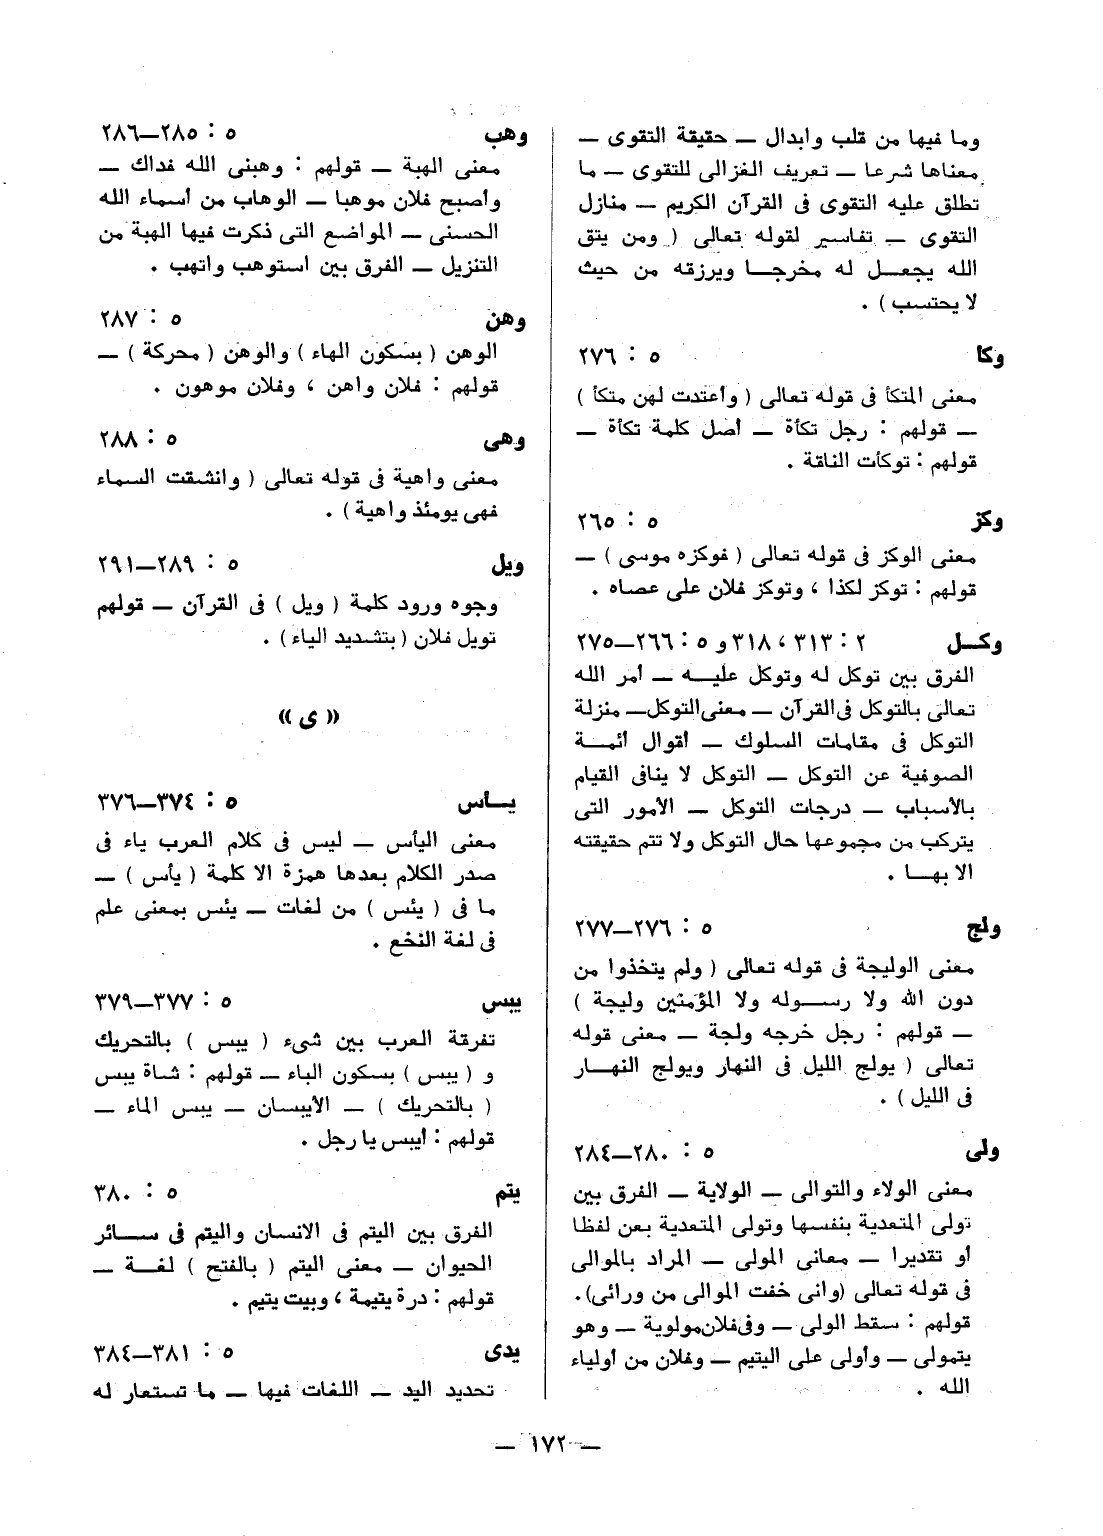 وما فيها من قلب وابدال — حقيقة التقوى —
معناها شرعا — تعريف الغزالى للتقوى — ما
تطلق عليه التقوى فى القرآن الكريم — منازل
التقوى — تفاسير لقوله تعالى ( ومن يتق
الله يجعل له مخرجا ويرزقه من حيث
لا يحتسب ) .
وكا ٥ : ٢٧٦
معنى المتكأ فى قوله تعالى ( وأعتدت لهن متكأ )
— قولهم : رجل تكأة — أصل كلمة تكأة —
قولهم : توكأت الناقة .
وكز ٥ : ٢٦٥
معنى الوكز فى قوله تعالى ( فوكزه موسى ) —
قولهم : توكز لكذا ، وتوكز فلان على عصاه .
وكل ٢ : ٣١٣ ، ٣١٨ و ٥ : ٢٦٦—٢٧٥
الفرق بين توكل له وتوكل عليه — أمر الله
تعالى بالتوكل فى القرآن — معنى التوكل — منزلة
التوكل فى مقامات السلوك — أقوال أئمة
الصوفية عن التوكل — التوكل لا ينافى القيام
بالأسباب — درجات التوكل — الأمور التى
يتركب من مجموعها حال التوكل ولا تتم حقيقته
الا بها .
ولج ٥ : ٢٧٦—٢٧٧
معنى الوليجة فى قوله تعالى ( ولم يتخذوا من
دون الله ولا رسوله ولا المؤمنين وليجة )
— قولهم : رجل خرجه ولجة — معنى قوله
تعالى ( يولج الليل فى النهار ويولج النهار
فى الليل ) .
ولى ٥ : ٢٨٠—٢٨٤
معنى الولاء والتوالى — الولاية — الفرق بين
تولى المتعدية بنفسها وتولى المتعدية بعن لفظا
أو تقديرا — معانى المولى — المراد بالموالى
فى قوله تعالى (وانى خفت الموالى من ورائى).
قولهم : سقط الولى — وفى فلان مولوية — وهو
يتمولى — وأولى على اليتيم — وفلان من أولياء
الله .
وهب ٥ : ٢٨٥—٢٨٦
معنى الهبة — قولهم : وهبنى الله فداك —
وأصبح فلان موهبا — الوهاب من أسماء الله
الحسنى — المواضع التى ذكرت فيها الهبة من
التنزيل — الفرق بين استوهب واتهب .
وهن ٥ : ٢٨٧
الوهن ( بسكون الهاء ) والوهن ( محركة ) —
قولهم : فلان واهن ، وفلان موهون .
وهى ٥ : ٢٨٨
معنى واهية فى قوله تعالى ( وانشقت السماء
فهى يومئذ واهية ) .
ويل ٥ : ٢٨٩—٢٩١
وجوه ورود كلمة ( ويل ) فى القرآن — قولهم
تويل فلان ( بتشديد الياء ) .
« ى »
يأس ٥ : ٣٧٤—٣٧٦
معنى اليأس — ليس فى كلام العرب ياء فى
صدر الكلام بعدها همزة الا كلمة ( يأس ) —
ما فى ( يئس ) من لغات — يئس بمعنى علم
فى لغة النخع .
يبس ٥ : ٣٧٧—٣٧٩
تفرقة العرب بين شىء ( يبس ) بالتحريك
و ( يبس ) بسكون الباء — قولهم : شاة يبس
( بالتحريك ) — الأيبسان — يبس الماء —
قولهم : أيبس يا رجل .
يتم ٥ : ٣٨٠
الفرق بين اليتم فى الانسان واليتم فى سائر
الحيوان — معنى اليتم ( بالفتح ) لغة —
قولهم : درة يتيمة ، وبيت يتيم .
يدى ٥ : ٣٨١—٣٨٤
تحديد اليد — اللغات فيها — ما تستعار له
— ١٧٢ —